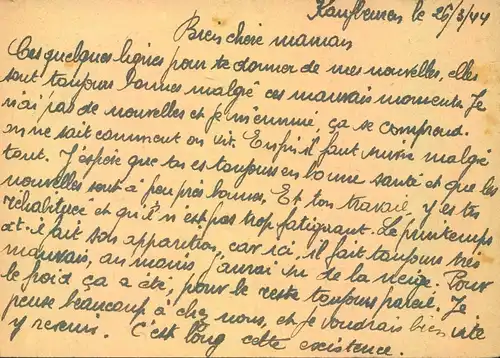 Kaufbeuren le 26/3/44
Bien chère maman
Ces quelques lignes pour te donner de mes nouvelles, elles
sont toujours bonnes malgré ces mauvais moments. Je
n'ai pas de nouvelles et je m'ennuie, ça se comprend.
on ne sait comment on vit. Enfin il faut suivre malgré
tout. J'espère que tu es toujours en bonne santé et que les
nouvelles sont à peu près bonnes. Et ton travail, y es tu
réhabituée et qu'il n'est pas trop fatiguant. Le printemps
at-il fait son apparition, car ici, il fait toujours très
mauvais, au moins j'aurai vu de la neige. Pour
le froid ça a été, pour le reste toujours pareil. Je
pense beaucoup à chez nous, et je voudrais bien vite
y revenir. C'est long cette existence.